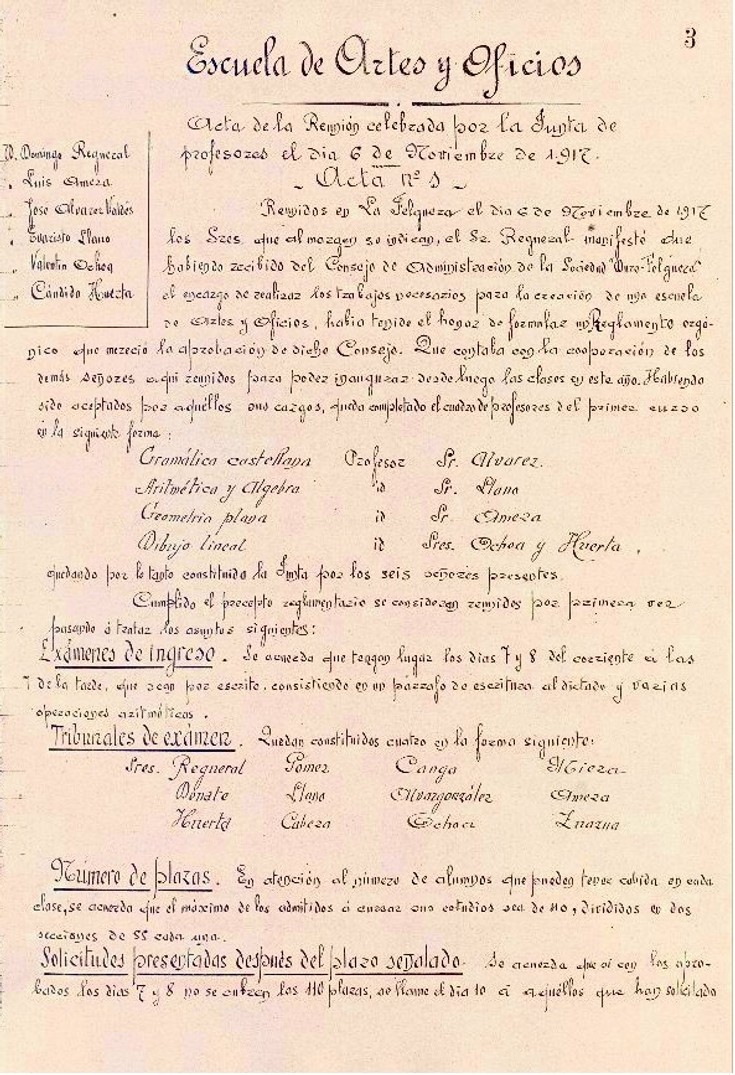 3
Escuela de Artes y Oficios
Acta de la Reunión celebrada por la Junta de
profesores el dia 6 de Noviembre de 1.917.
- Acta nº 1 -
D. Domingo Regueral
„ Luis Ameza
„ Jose Alvarez Valdés
„ Evaristo Llano
„ Valentin Ochoa
„ Cándido Huerta
Reunidos en La Felguera el dia 6 de Noviembre de 1917
los Sres. que al margen se indican, el Sr. Regueral manifestó que,
habiendo recibido del Consejo de Administración de la Sociedad "Duro-Felguera"
el encargo de realizar los trabajos necesarios para la creación de una escuela
de Artes y Oficios, habia tenido el honor de formular un Reglamento orgá-
nico que mereció la aprobación de dicho Consejo. Que contaba con la cooperación de los
demás señores aqui reunidos para poder inaugurar desde luego las clases en este año. Habiendo
sido aceptados por aquéllos sus cargos, queda completado el cuadro de profesores del primer curso
en la siguiente forma:
Gramática castellana Profesor Sr. Alvarez.
Aritmética y Algebra id Sr. Llano
Geometria plana id Sr. Ameza
Dibujo lineal id Sres. Ochoa y Huerta,
quedando por lo tanto constituida la Junta por los seis señores presentes.
Cumplido el precepto reglamentario se consideran reunidos por primera vez
pasando á tratar los asuntos siguientes:
Exámenes de ingreso. Se acuerda que tengan lugar los dias 7 y 8 del corriente á las
7 de la tarde, que sean por escrito, consistiendo en un párrafo de escritura al dictado y varias
operaciones aritméticas.
Tribunales de exámen. Quedan constituidos cuatro en la forma siguiente:
Sres. Regueral Gomez Canga Miera
Donate Llano Alvargonzález Ameza
Huerta Cabeza Ochoa
Número de plazas. En atención al número de alumnos que pueden tener cabida en cada
clase, se acuerda que el máximo de los admitidos á cursar sus estudios sea de 110, divididos en dos
secciones de 55 cada una.
Solicitudes presentadas después del plazo señalado. Se acuerda que si con los apro-
bados los dias 7 y 8 no se cubren las 110 plazas, se llame el dia 10 á aquéllos que han solicitado